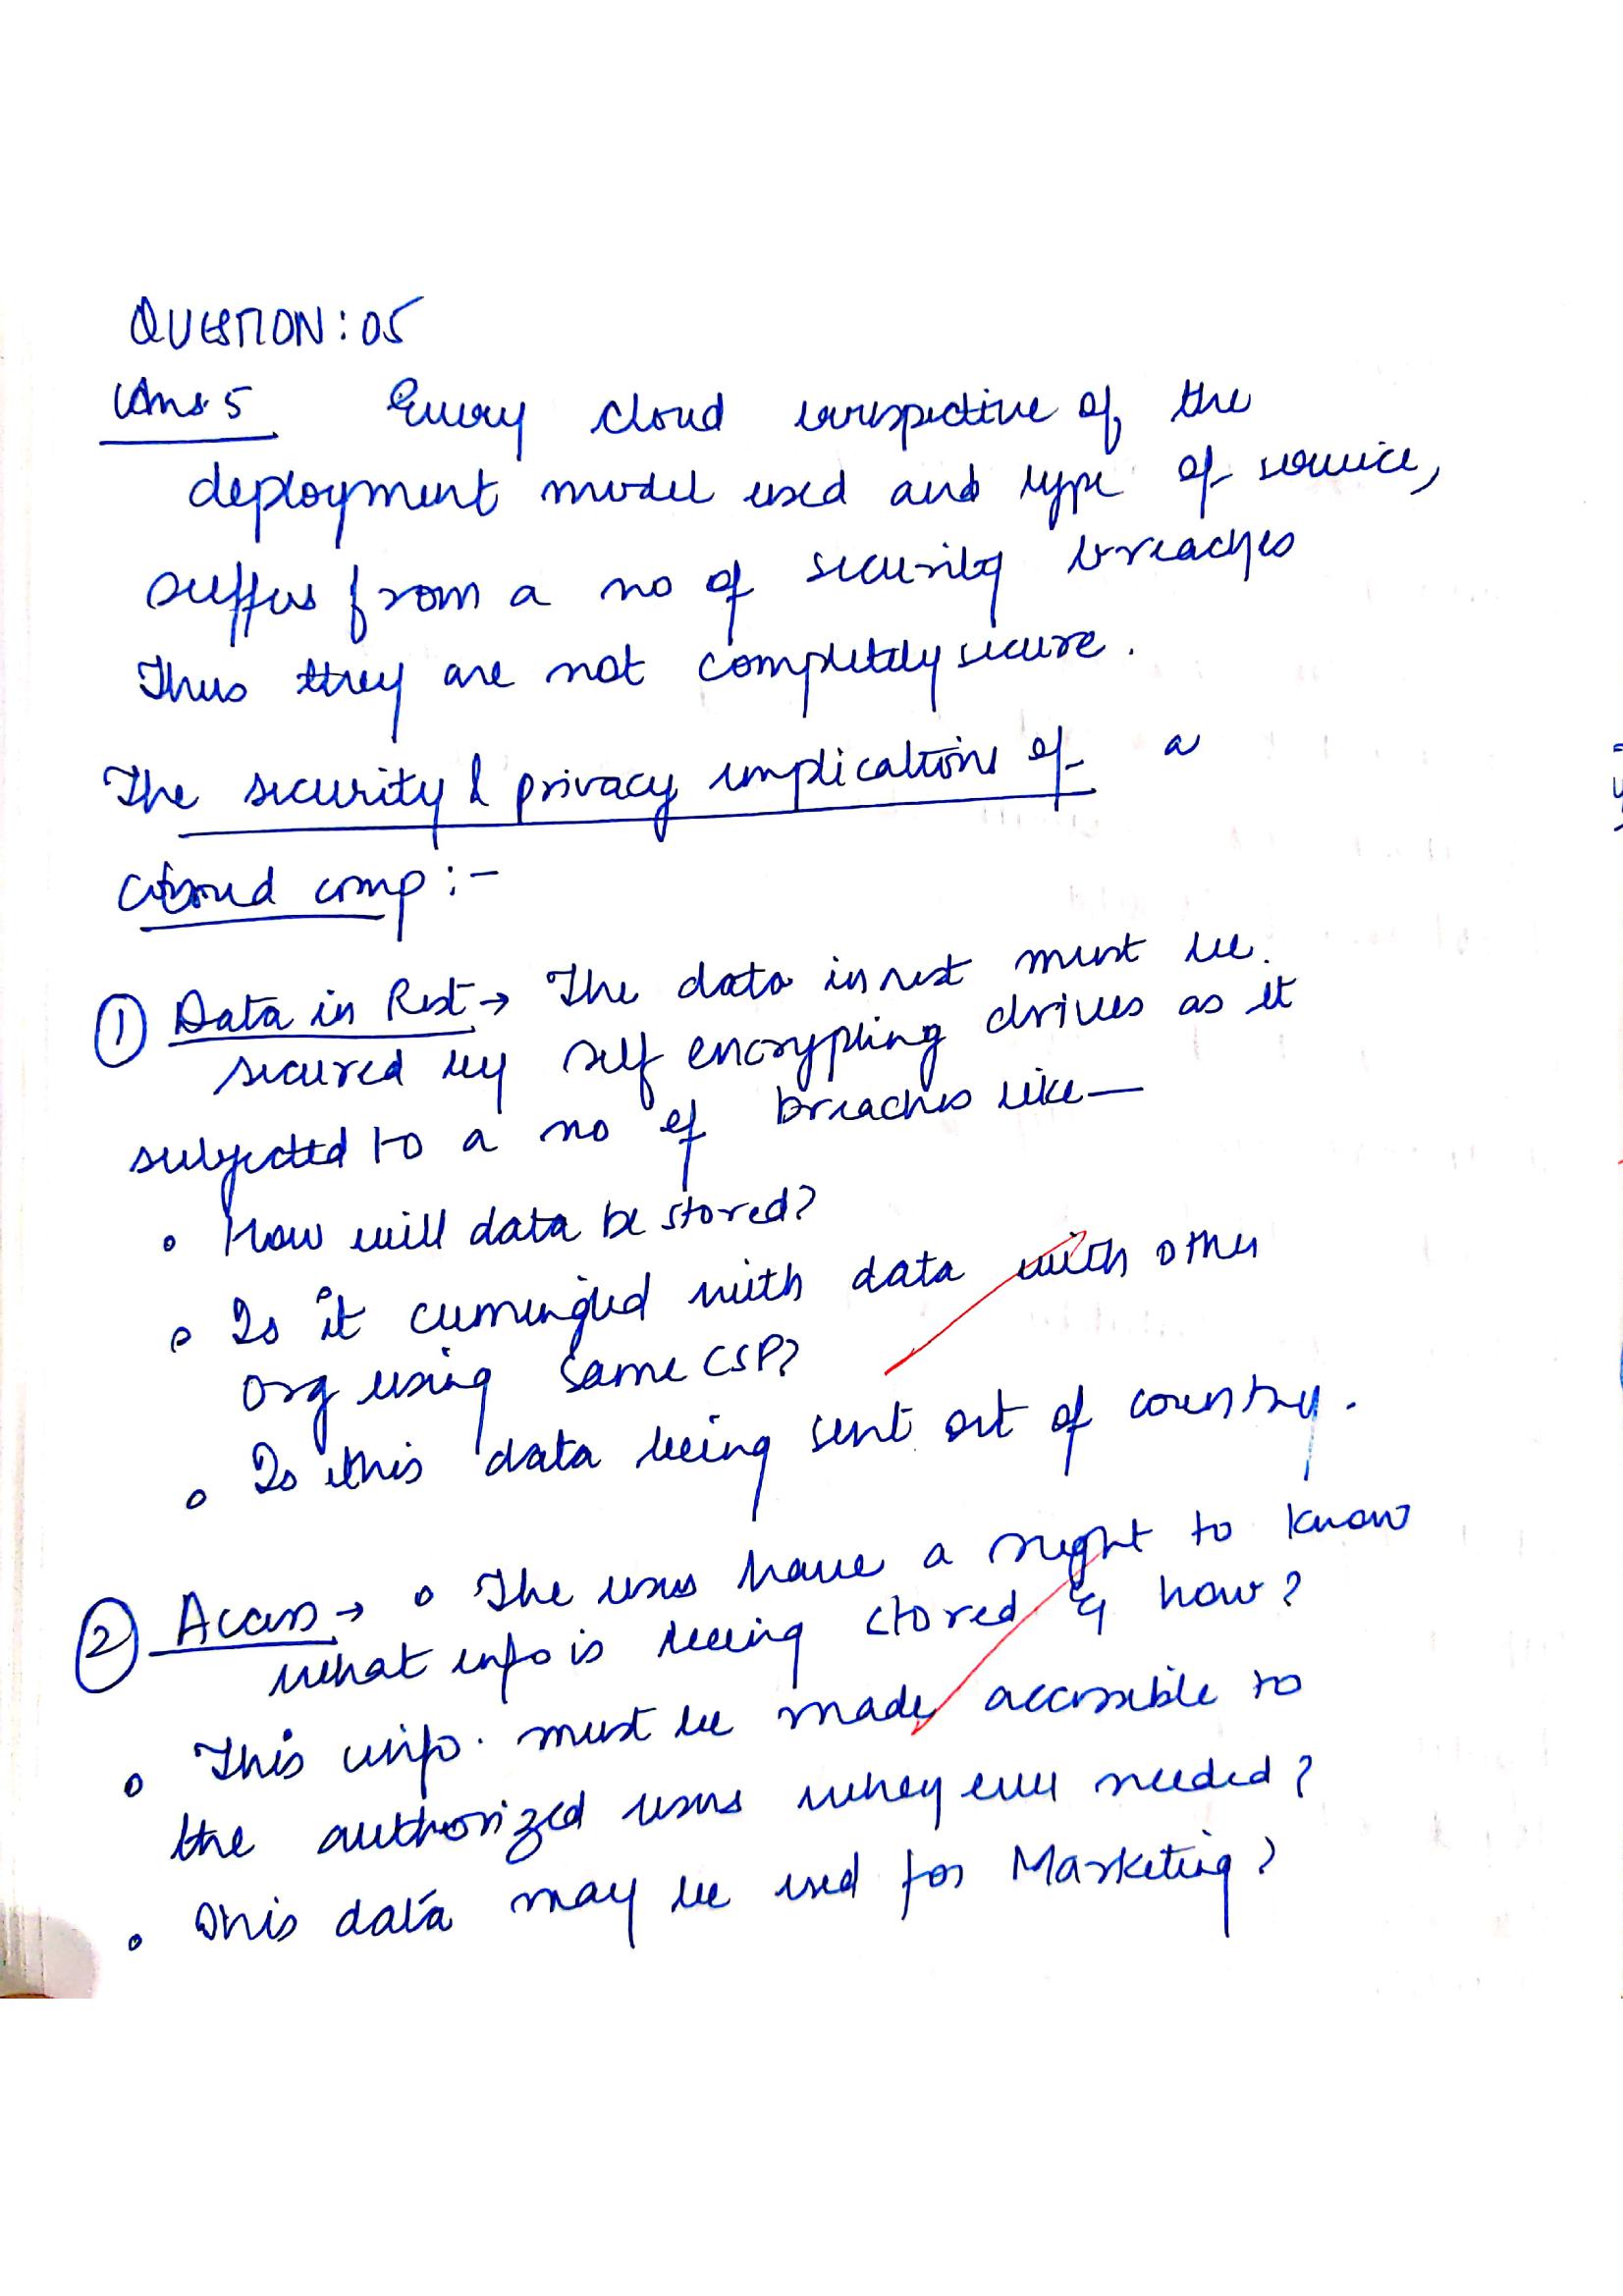 QUESTION: 05
Ans. 5 Every cloud irrispective of the
deployment model used and type of service,
suffers from a no of security breaches
Thus they are not completely secure.
The security & privacy implications of a
cloud comp :-
① Data in Rest → The data in rest must be.
secured by self encrypting drives as it
subjected to a no of breaches like—
• How will data be stored?
• Is it cumingled with data with other
org using same CSP?
• Is this data being sent out of country.
② Access → • The users have a right to know
what info is being stored & how?
• This info. must be made accessible to
the authorized users whey ever needed?
• This data may be used for Marketing?